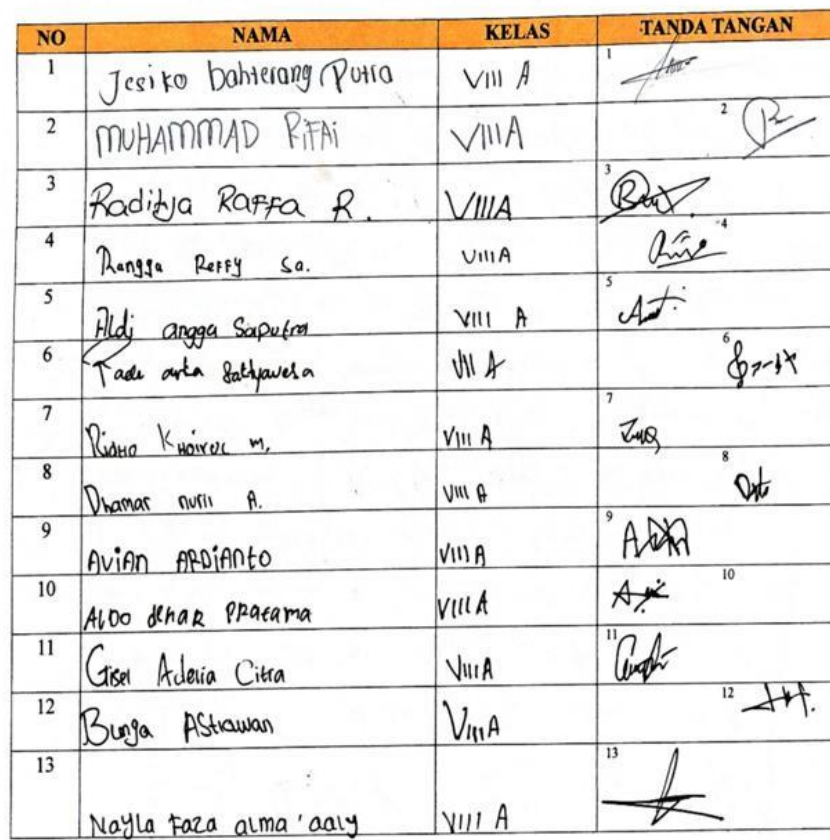 NO NAMA KELAS TANDA TANGAN
1 Jesiko bahterang Putra VIII A 1
2 MUHAMMAD RiFAi VIIIA 2
3 Raditja RaFFa R. VIIIA 3
4 Rangga ReFFy Sa. VIIIA 4
5 Aldi angga Saputra VIII A 5
6 arta VIII A 6
7 Ridho KHoirul M. VIII A 7
8 Dhamar nuril A. VIII A 8
9 AViAn ARDiANto VIII A 9
10 ALDO denar PRatama VIII A 10
11 Gisel Aderia Citra VIII A 11
12 Bunga AStiawan VIIIA 12
13 Nayla Faza alma'aaly VIII A 13